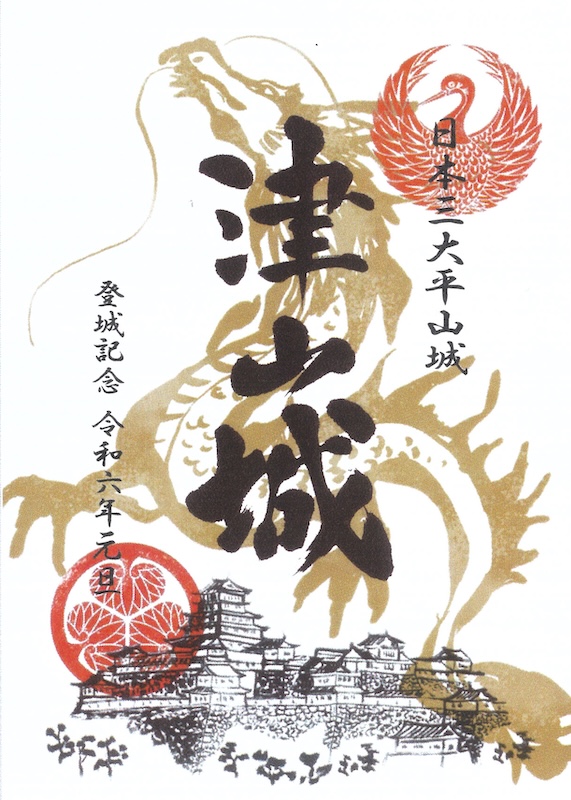 日本三大平山城
津山城
登城記念 令和六年元旦